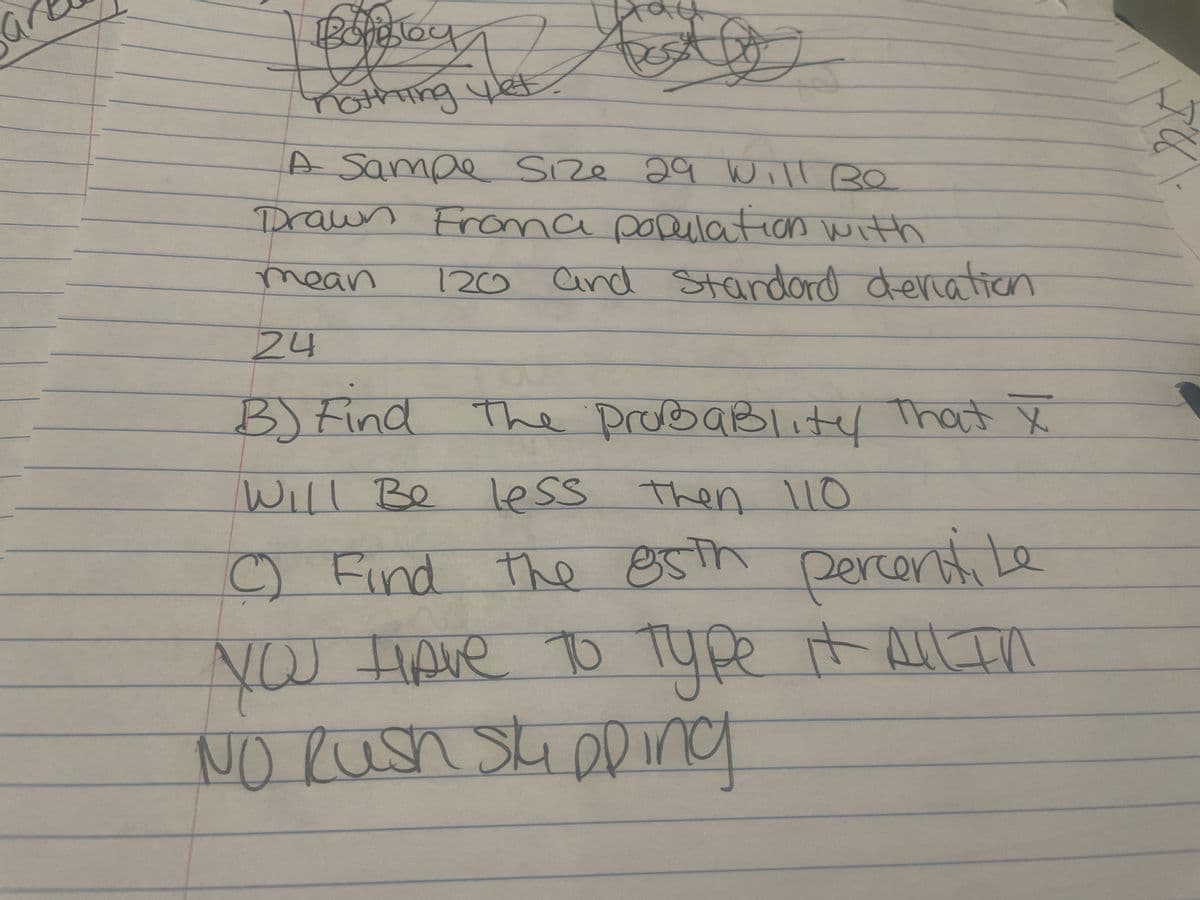 nothing yet.
A Sampe Size 29 Will Be
Drawn From a population with
mean 120 and Standard deviation
24
B) Find The ProBaBlity That x̅
Will Be less Then 110
C) Find the 85Th percentile
YOU HAVE TO Type it All In
NO Rush Skipping